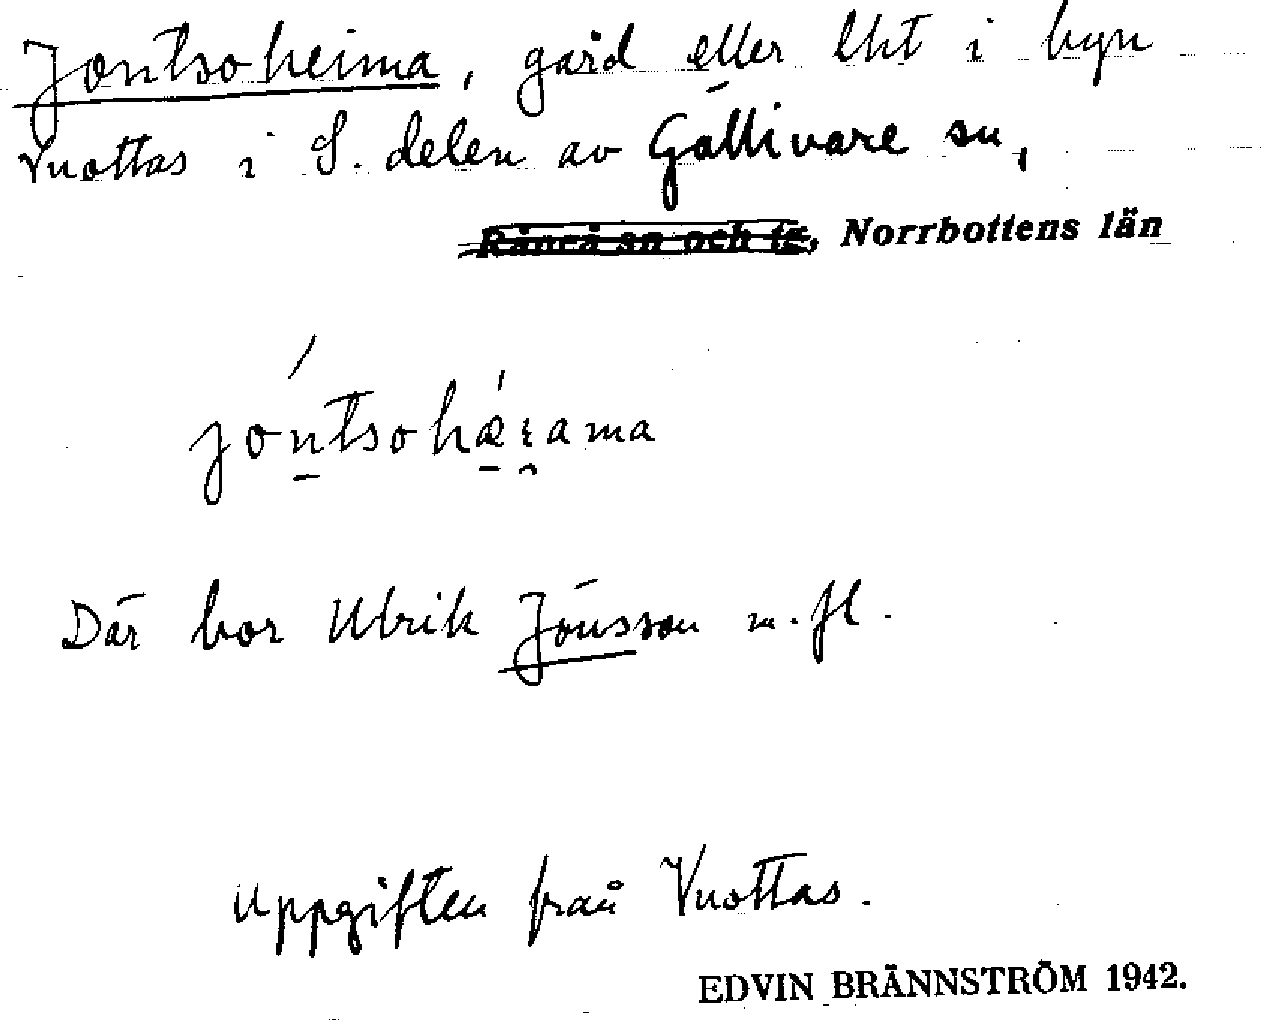 Jontsoheima, gård eller lht i byn
Vuottas i S. delen av Gällivare sn,
Råneå sn och tg, Norrbottens län
jóntsohæ̀ɪama
Där bor Ulrik Jönsson m. fl.
Uppgiften från Vuottas.
EDVIN BRÄNNSTRÖM 1942.